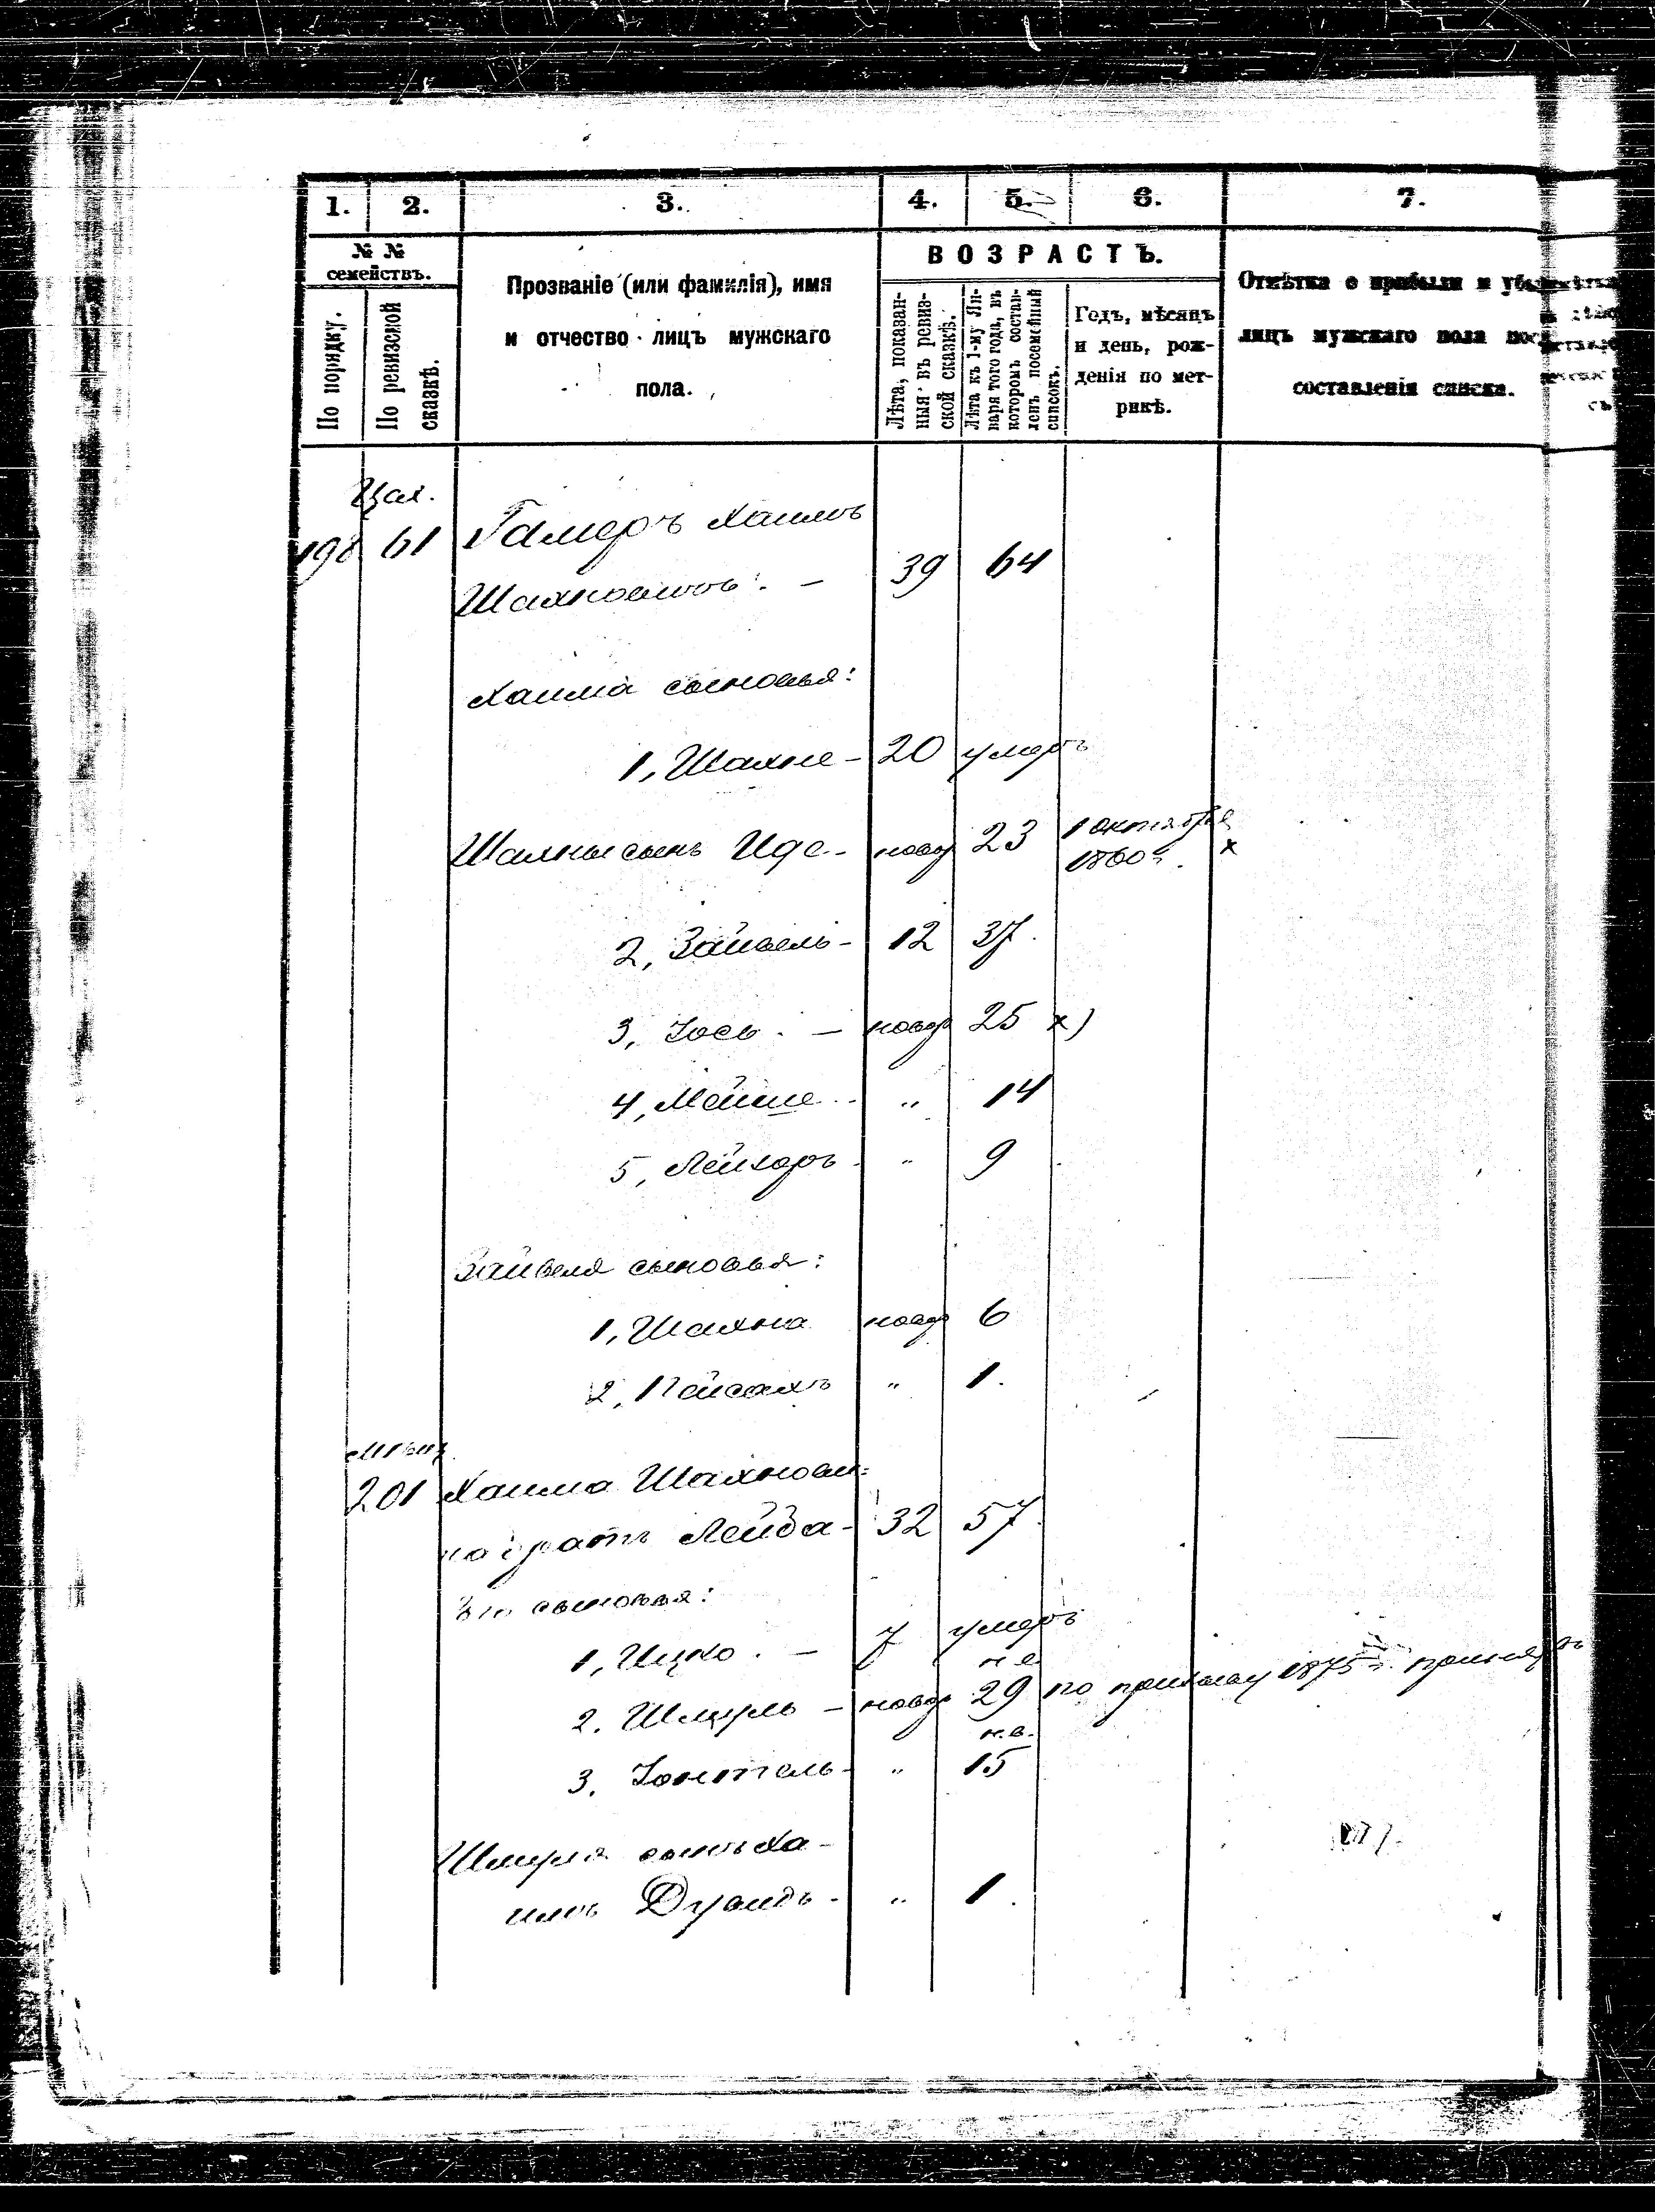 1. 2. 3. 4. 5. 6. 7.
№ №
семействъ.
По порядку.
По ревизской
сказкѣ.
Прозваніе (или фамилія), имя
и отчество лицъ мужскаго
пола.
ВОЗРАСТЪ.
Лѣта, показан-
ныя въ ревиз-
ской сказкѣ.
Лѣта къ 1-му Ян-
варя того года, въ
которомъ состав-
ленъ посемейный
списокъ.
Годъ, мѣсяцъ
и день, рож-
денія по мет-
рикѣ.
Отмѣтка о прибыли и убы
лицъ мужскаго пола пос
составленія списка.
198 61 Гамеръ Хаимъ
Шахновичъ. — 39 64
Хаима сыновья:
1, Шахне - 20 умеръ
Шахны сынъ Иде - новор 23 1 октября
1860 г. х
2, Зайвель - 12 37.
3, Іось. — новор 25 х)
4, Мейше - „ 14
5, Лейзоръ - „ 9
Зайвеля сыновья:
1, Шахна новор 6
2, Пейсахъ „ 1.
201 Хаима Шахнови-
ча братъ Лейба - 32 57.
Его сыновья:
1, Ицко. — 7 умеръ
2. Шмуль - новор 29 по призыву 1875 г. принятъ
н.в.
3. Іонтель - „ 15
Шмуля сынъ Ха-
имъ Дувидъ - „ 1.